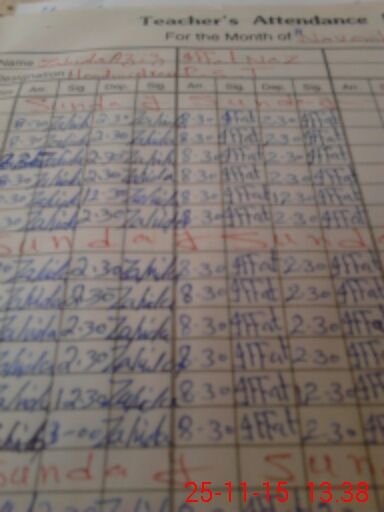 Teacher's Attendance
For the Month of Novem
Name Zahida Aziz Iffat Naz
Designation Headmistress P.S.T
Arr. Sig. Dep. Sig. Arr. Sig. Dep. Sig. Arr. Sig.
Sunday Sunday
8.30 Zahida 2.30 Zahida 8.30 Iffat 2.30 Iffat
8.30 Zahida 2.30 Zahida 8.30 Iffat 2.30 Iffat
8.30 Zahida 2.30 Zahida 8.30 Iffat 2.30 Iffat
8.30 Zahida 2.30 Zahida 8.30 Iffat 2.30 Iffat
8.30 Zahida 12.30 Zahida 8.30 Iffat 12.30 Iffat
.30 Zahida 2.30 Zahida 8.30 Iffat 2.30 Iffat
Sunday Sun
Zahida 2.30 Zahida 8.30 Iffat 2.30 Iffat
Zahida 8.30 Zahida 8.30 Iffat 2.30 Iffat
Zahida 2.30 Zahida 8.30 Iffat 2.30 Iffat
Zahida 2.30 Zahida 8.30 Iffat 2.30 Iffat
Zahida 12.30 Zahida 8.30 Iffat 12.30 Iffat
Zahida 3-00 Zahida 8.30 Iffat 2.30 Iffat
Sunday Sun
25-11-15 13.38